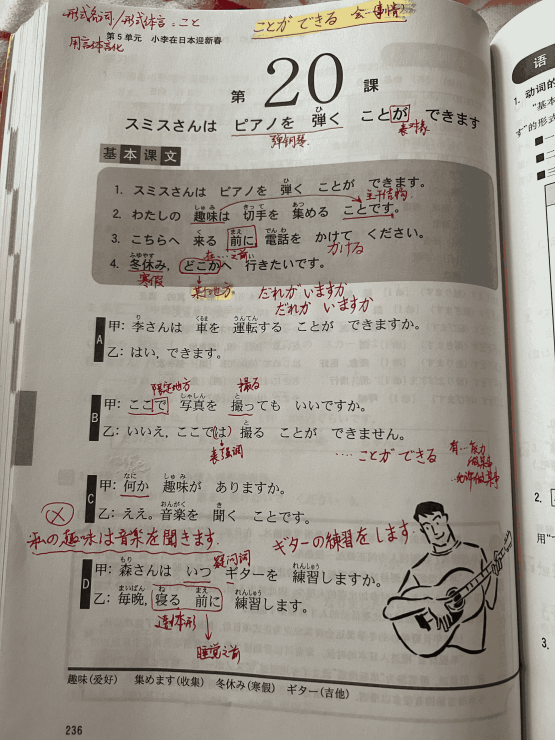 形式名词/形式体言：こと
ことが できる 会…(事情)
用言体言化
第5单元 小李在日本迎新春
第 20 課
スミスさんは ピアノを 弾く ことが できます
ひ
弹钢琴
表对象
基本课文
1. スミスさんは ピアノを 弾く ことが できます。
ひ
主干结构
2. わたしの 趣味は 切手を 集める ことです。
しゅみ きって あつ
3. こちらへ 来る 前に 電話を かけて ください。
く まえ でんわ
在…之前 かける
4. 冬休み, どこかへ 行きたいです。
ふゆやす い
寒假 某地方
だれが いますか
だれか いますか
A
甲: 李さんは 車を 運転する ことが できますか。
り くるま うんてん
乙: はい, できます。
限定地方 撮る
B
甲: ここで 写真を 撮っても いいですか。
しゃしん と
乙: いいえ, ここでは 撮る ことが できません。
と
表强调
…ことが できる 有…能力做某事
允许做某事
C
甲: 何か 趣味が ありますか。
なに しゅみ
乙: ええ。音楽を 聞く ことです。
おんがく き
私の趣味は音楽を聞きます.
ギターの練習をします.
疑问词
D
甲: 森さんは いつ ギターを 練習しますか。
もり れんしゅう
乙: 毎晩, 寝る 前に 練習します。
まいばん ね まえ れんしゅう
连体形
睡觉之前
趣味(爱好) 集めます(收集) 冬休み(寒假) ギター(吉他)
236
语
1. 动词的
"基本
す"的形式
2.
用"
3.